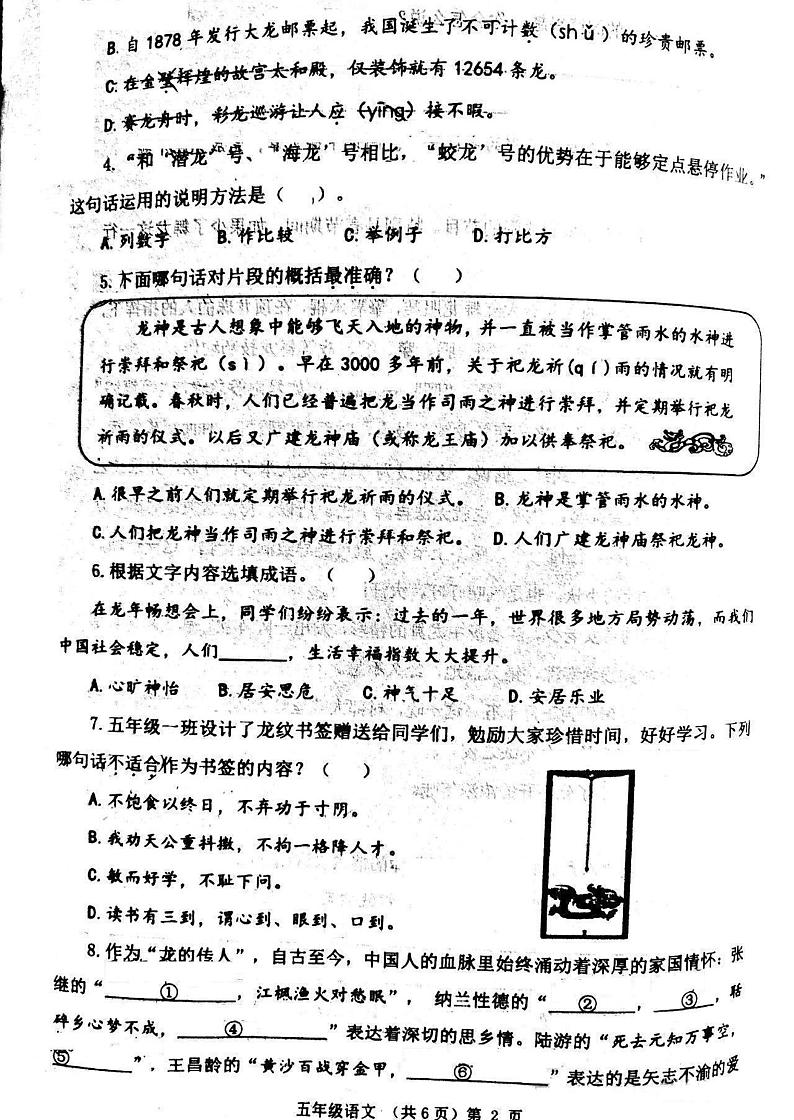 B.自1878年发行大龙邮票起，我国诞生了不可计数（shǔ）的珍贵邮票。
C.在金碧辉煌的故宫太和殿，仅装饰就有12654条龙。
D.赛龙舟时，彩龙巡游让人应（yīng）接不暇。
4.“和‘潜龙’号、‘海龙’号相比，‘蛟龙’号的优势在于能够定点悬停作业。”
这句话运用的说明方法是（ ）。
A.列数字 B.作比较 C.举例子 D.打比方
5.下面哪句话对片段的概括最准确？（ ）
龙神是古人想象中能够飞天入地的神物，并一直被当作掌管雨水的水神进
行崇拜和祭祀（sì）。早在3000多年前，关于祀龙祈(qí)雨的情况就有明
确记载。春秋时，人们已经普遍把龙当作司雨之神进行崇拜，并定期举行祀龙
祈雨的仪式。以后又广建龙神庙（或称龙王庙）加以供奉祭祀。
A.很早之前人们就定期举行祀龙祈雨的仪式。 B.龙神是掌管雨水的水神。
C.人们把龙神当作司雨之神进行崇拜和祭祀。 D.人们广建龙神庙祭祀龙神。
6.根据文字内容选填成语。（ ）
在龙年畅想会上，同学们纷纷表示：过去的一年，世界很多地方局势动荡，而我们
中国社会稳定，人们______，生活幸福指数大大提升。
A.心旷神怡 B.居安思危 C.神气十足 D.安居乐业
7.五年级一班设计了龙纹书签赠送给同学们，勉励大家珍惜时间，好好学习。下列
哪句话不适合作为书签的内容？（ ）
A.不饱食以终日，不弃功于寸阴。
B.我劝天公重抖擞，不拘一格降人才。
C.敏而好学，不耻下问。
D.读书有三到，谓心到、眼到、口到。
8.作为“龙的传人”，自古至今，中国人的血脉里始终涌动着深厚的家国情怀：张
继的“____①____，江枫渔火对愁眠”，纳兰性德的“__②__，__③__，聒
碎乡心梦不成，____④____”表达着深切的思乡情。陆游的“死去元知万事空，
⑤______”，王昌龄的“黄沙百战穿金甲，____⑥____”表达的是矢志不渝的爱
五年级语文 （共6页）第 2 页